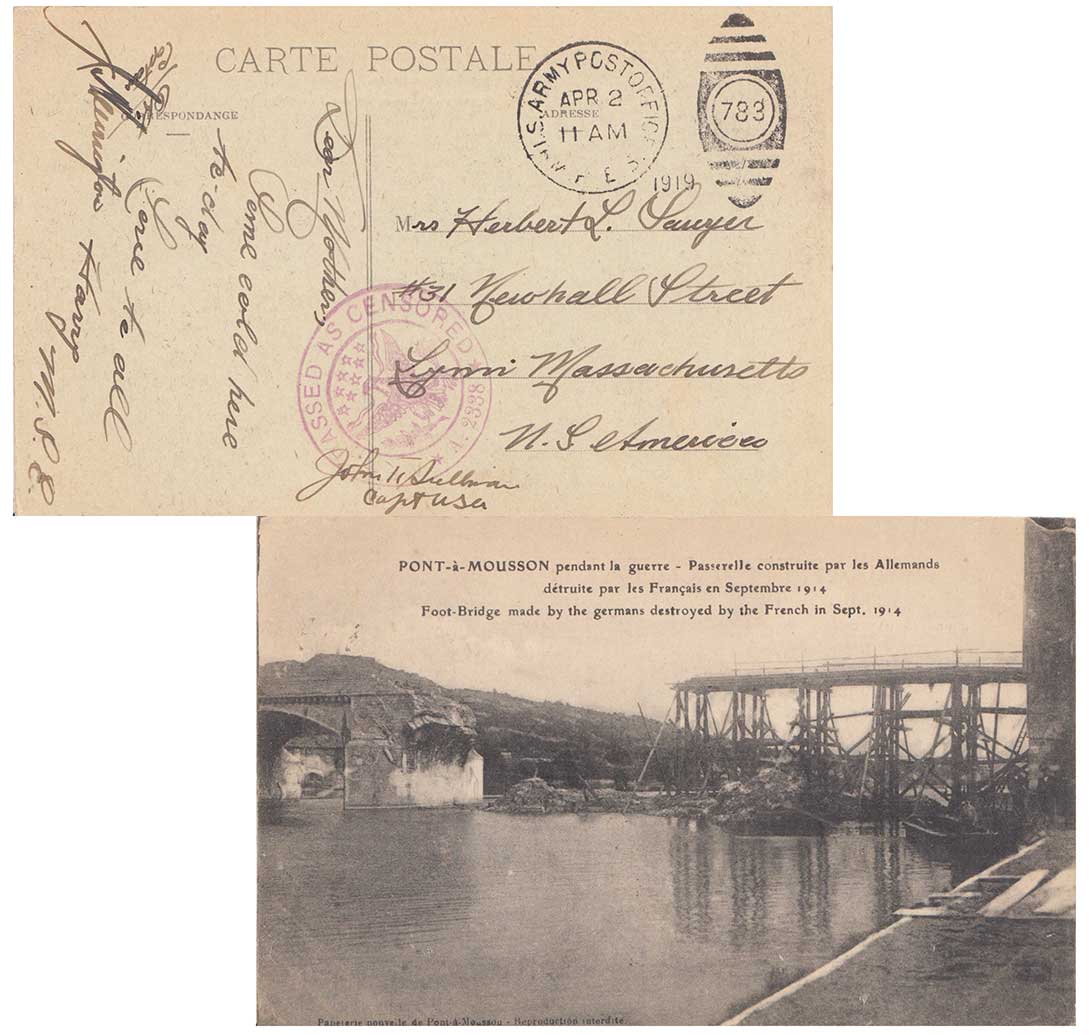 CARTE POSTALE
CORRESPONDANCE
ADRESSE
U.S. ARMY POST OFFICE
APR 2
11 AM
M.P.E.S.
1919
783
Dear Mother,
Some cold here
to-day
Love to all
Harry
M.P.E.
PASSED AS CENSORED
A. 2338
John
Capt USA
Mrs Herbert L. Sawyer
#31 Newhall Street
Lynn Massachusetts
U.S America
PONT-à-MOUSSON pendant la guerre - Passerelle construite par les Allemands
détruite par les Français en Septembre 1914
Foot-Bridge made by the germans destroyed by the French in Sept. 1914
Papeterie nouvelle de Pont-à-Mousson - Reproduction interdite.